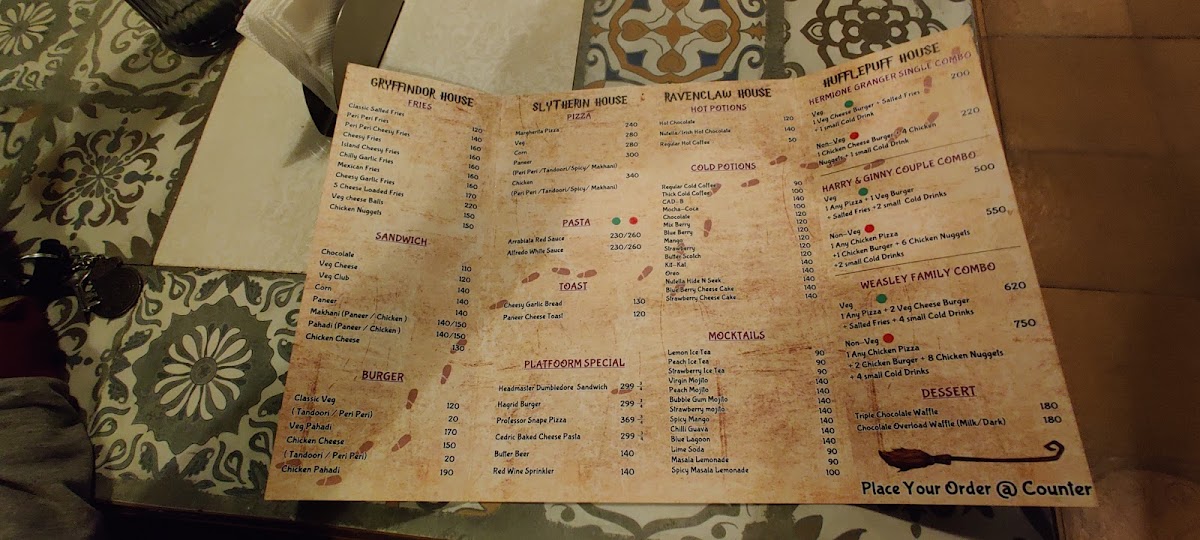 GRYFFINDOR HOUSE
FRIES
Classic Salled Fries 120
Peri Peri Fries 140
Peri Peri Cheesy Fries 160
Cheesy Fries 160
Island Cheesy Fries 160
Chilly Garlic Fries 160
Mexican Fries 160
Cheesy Garlic Fries 170
5 Cheese Loaded Fries 220
Veg cheese Balls 150
Chicken Nuggets 150
SANDWICH
Chocolate 110
Veg Cheese 120
Veg Club 140
Corn 140
Paneer 140
Makhani (Paneer / Chicken) 140/150
Pahadi (Paneer / Chicken) 140/150
Chicken Cheese 130
BURGER
Classic Veg 120
(Tandoori / Peri Peri) 20
Veg Pahadi 170
Chicken Cheese 150
(Tandoori / Peri Peri) 20
Chicken Pahadi 190
SLYTHERIN HOUSE
PIZZA
Margherita Pizza 240
Veg 280
Corn 280
Paneer 300
(Peri Peri /Tandoori/Spicy/ Makhani)
Chicken 340
(Peri Peri /Tandoori/Spicy/ Makhani)
PASTA
Arrabiala Red Sauce 230/260
Alfredo While Sauce 230/260
TOAST
Cheesy Garlic Bread 130
Paneer Cheese Toast 120
PLATFOORM SPECIAL
Headmaster Dumbledore Sandwich 299 3/4
Hagrid Burger 299 3/4
Professor Snape Pizza 369 3/4
Cedric Baked Cheese Pasta 299 3/4
Butter Beer 140
Red Wine Sprinkler 140
RAVENCLAW HOUSE
HOT POTIONS
Hot Chocolate 120
Nutella/Irish Hot Chocolate 140
Regular Hot Coffee 50
COLD POTIONS
Regular Cold Coffee 90
Thick Cold Coffee 100
CAD-B 100
Mocha-Coca 120
Chocolate 120
Mix Berry 120
Blue Berry 120
Mango 120
Strawberry 120
Butter Scotch 120
Kit-Kat 140
Oreo 140
Nutella Hide N Seek 140
Blue Berry Cheese Cake 140
Strawberry Cheese Cake 140
MOCKTAILS
Lemon Ice Tea 90
Peach Ice Tea 90
Strawberry Ice Tea 90
Virgin Mojito 140
Peach Mojito 140
Bubble Gum Mojito 140
Strawberry mojito 140
Spicy Mango 140
Chilli Guava 140
Blue Lagoon 140
Lime Soda 90
Masala Lemonade 90
Spicy Masala Lemonade 100
HUFFLEPUFF HOUSE
HERMIONE GRANGER SINGLE COMBO
Veg 200
1 Veg Cheese Burger + Salled Fries
+ 1 small Cold Drink
Non-Veg 220
1 Chicken Cheese Burger + 4 Chicken
Nuggets + 1 small Cold Drink
HARRY & GINNY COUPLE COMBO
Veg 500
1 Any Pizza + 1 Veg Burger
+ Salled Fries +2 small Cold Drinks
Non-Veg 550
1 Any Chicken Pizza
+1 Chicken Burger + 6 Chicken Nuggets
+2 small Cold Drinks
WEASLEY FAMILY COMBO
Veg 620
1 Any Pizza + 2 Veg Cheese Burger
+ Salled Fries + 4 small Cold Drinks
Non-Veg 750
1 Any Chicken Pizza
+ 2 Chicken Burger + 8 Chicken Nuggets
+ 4 small Cold Drinks
DESSERT
Triple Chocolate Waffle 180
Chocolate Overload Waffle (Milk/Dark) 180
Place Your Order @ Counter